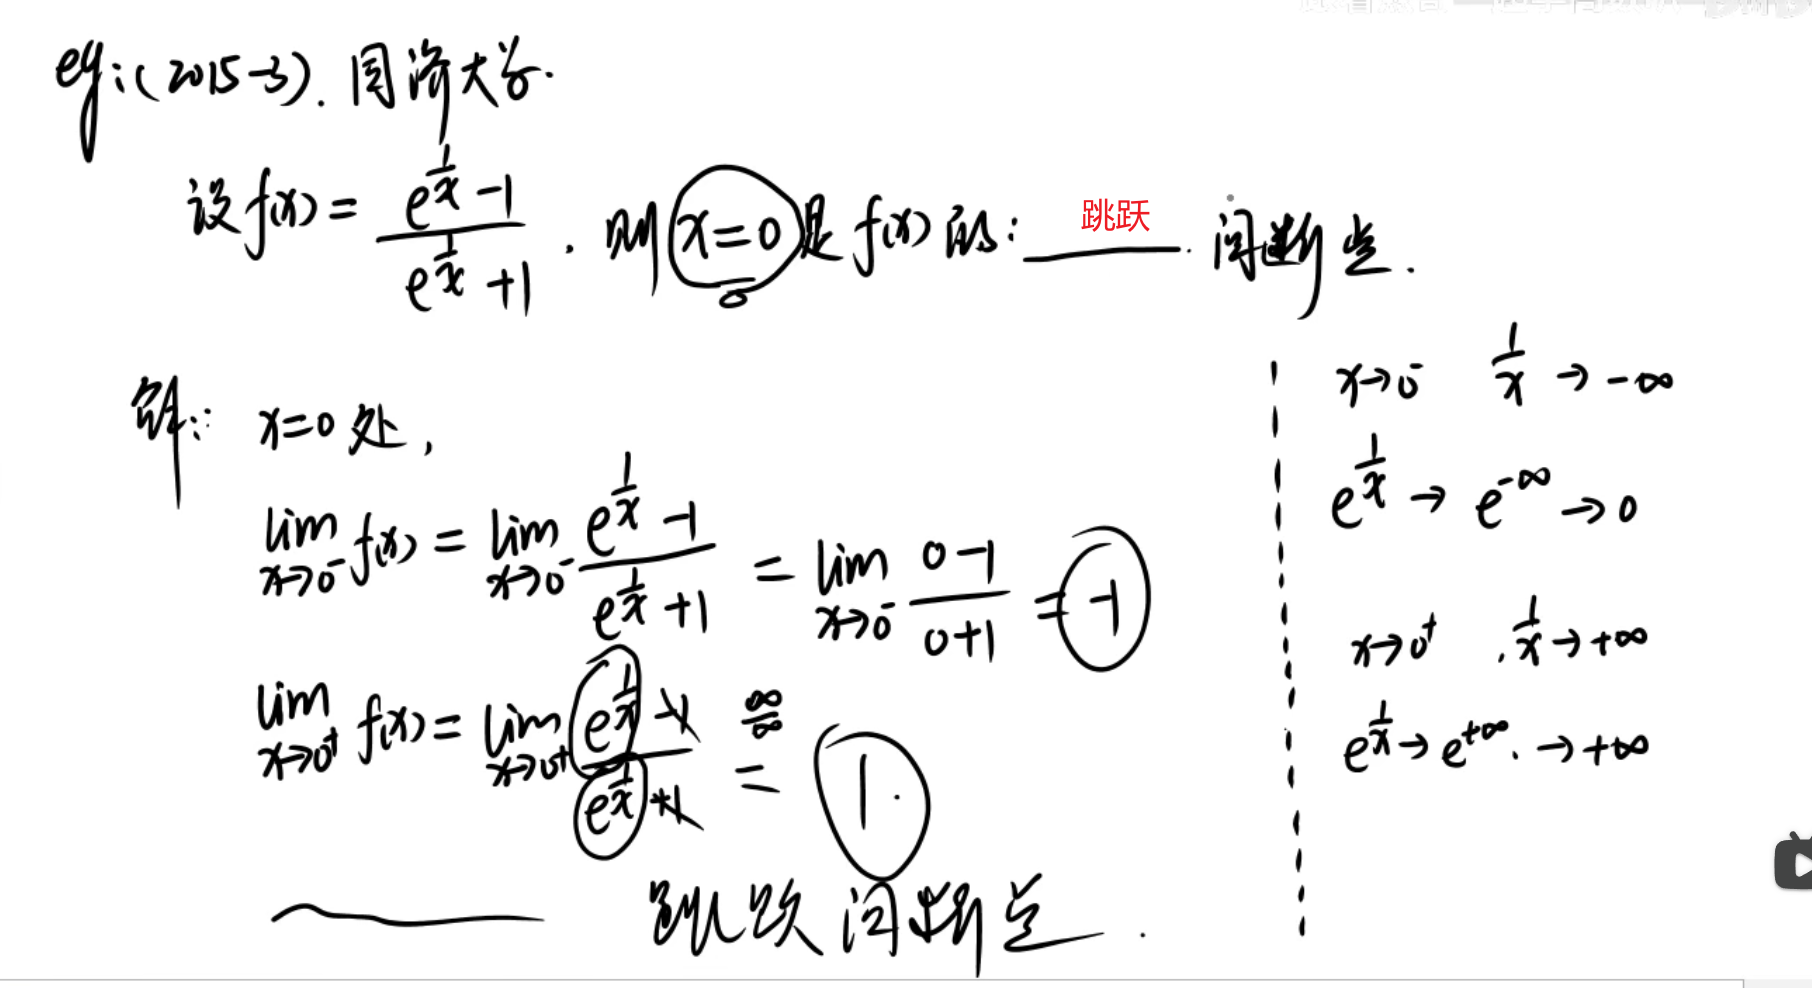 eg:(2015-3).同济大学.
设f(x)=(e^(1/x)-1)/(e^(1/x)+1).则x=0是f(x)的:跳跃.间断点.
解: x=0处,
lim x→0⁻ f(x)=lim x→0⁻ (e^(1/x)-1)/(e^(1/x)+1)=lim x→0⁻ (0-1)/(0+1)=-1
lim x→0⁺ f(x)=lim x→0⁺ (e^(1/x)-1)/(e^(1/x)+1) ∞/∞ = 1.
跳跃间断点.
x→0⁻ 1/x→-∞
e^(1/x)→e^(-∞)→0
x→0⁺.1/x→+∞
e^(1/x)→e^(+∞).→+∞